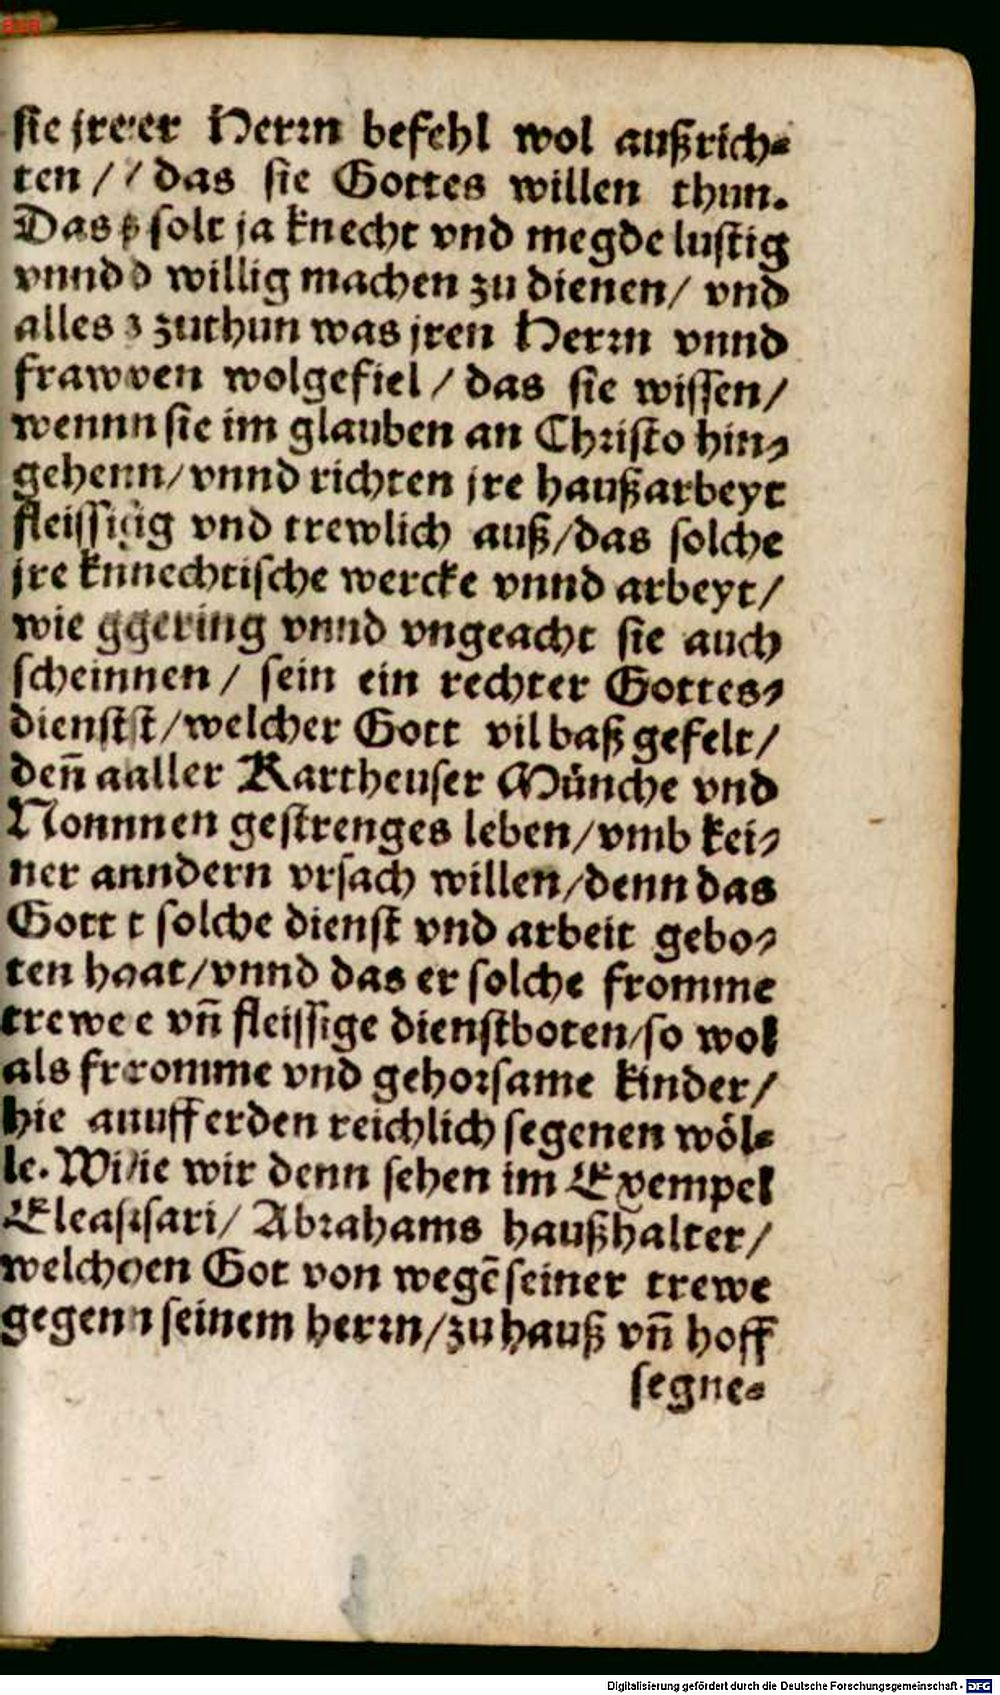 sie jrer Herrn befehl wol außrich-
ten / das sie Gottes willen thun.
Das solt ja knecht vnd megde lustig
vnnd willig machen zu dienen/ vnd
alles zuthun was jren Herrn vnnd
frawen wolgefiel / das sie wissen/
wenn sie im glauben an Christo hin-
gehen/vnnd richten jre haußarbeyt
fleissig vnd trewlich auß/das solche
jre knechtische wercke vnnd arbeyt/
wie gering vnnd vngeacht sie auch
scheinen / sein ein rechter Gottes-
dienst/welcher Gott vil baß gefelt/
deñ aller Kartheuser Münche vnd
Nonnen gestrenges leben/vmb kei-
ner andern vrsach willen/denn das
Gott solche dienst vnd arbeit gebo-
ten hat/vnnd das er solche fromme
trewe vñ fleissige dienstboten/so wol
als fromme vnd gehorsame kinder/
hie auff erden reichlich segenen wöl-
le. Wie wir denn sehen im Exempel
Eleasari/ Abrahams haußhalter/
welchen Got von wegẽ seiner trewe
gegen seinem herrn/zu hauß vñ hoff
segne-
Digitalisierung gefördert durch die Deutsche Forschungsgemeinschaft - DFG